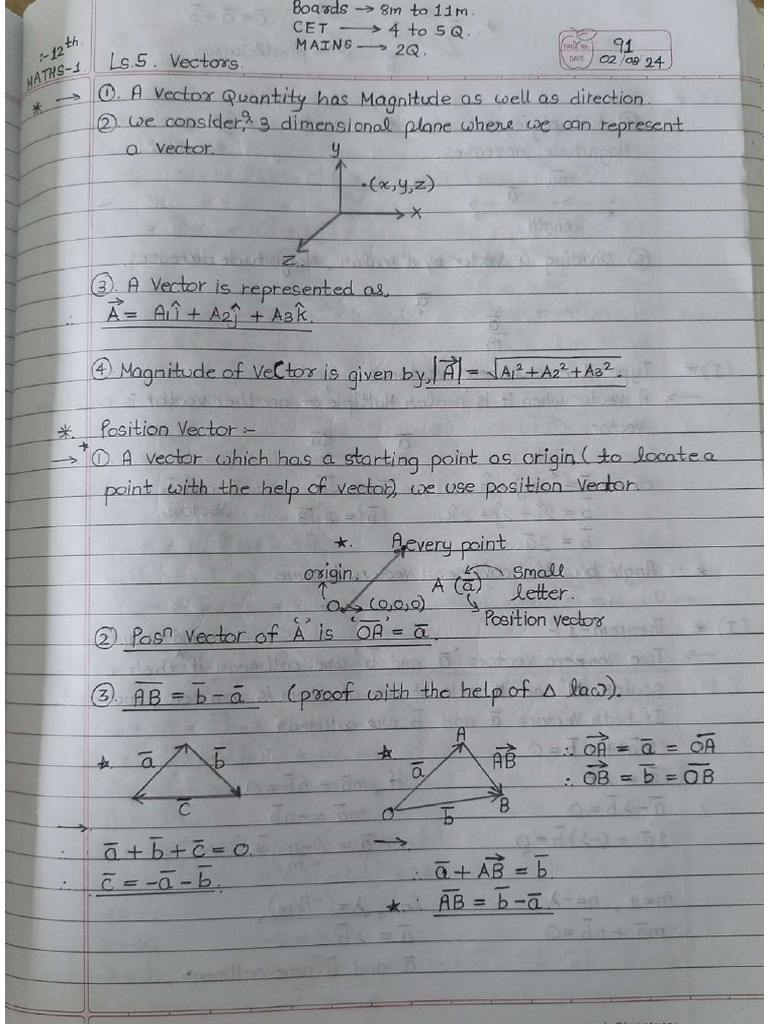 Boards → 8m to 11m.
CET → 4 to 5 Q.
MAINS → 2Q.
:-12th
MATHS-1
Ls.5. Vectors.
PAGE NO. 91
DATE 02/08/24
* → ①. A Vector Quantity has Magnitude as well as direction.
② We consider, a 3 dimensional plane where we can represent
a vector.
y
•(x,y,z)
x
z
③. A Vector is represented as,
∴ A⃗ = A₁î + A₂ĵ + A₃k̂.
④. Magnitude of Vector is given by, |A⃗| = √A₁²+A₂²+A₃².
*. Position Vector :-
→ * ①. A vector which has a starting point as origin. (to locate a
point with the help of vector), we use position vector.
*. A, every point
origin. A (a̅) small
letter.
O (0,0,0)
Position vector
② Posⁿ vector of 'A' is 'O̅A̅' = a̅.
③. A̅B̅ = b̅ - a̅ (proof with the help of Δ law).
*. a̅ b̅ c̅
* O A B a̅ b̅ AB⃗
∴ OA⃗ = a̅ = O̅A̅
∴ OB⃗ = b̅ = O̅B̅
→
∴ a̅ + b̅ + c̅ = 0. →
∴ c̅ = -a̅ - b̅.
∴ a̅ + AB⃗ = b̅
*∴ A̅B̅ = b̅ - a̅.